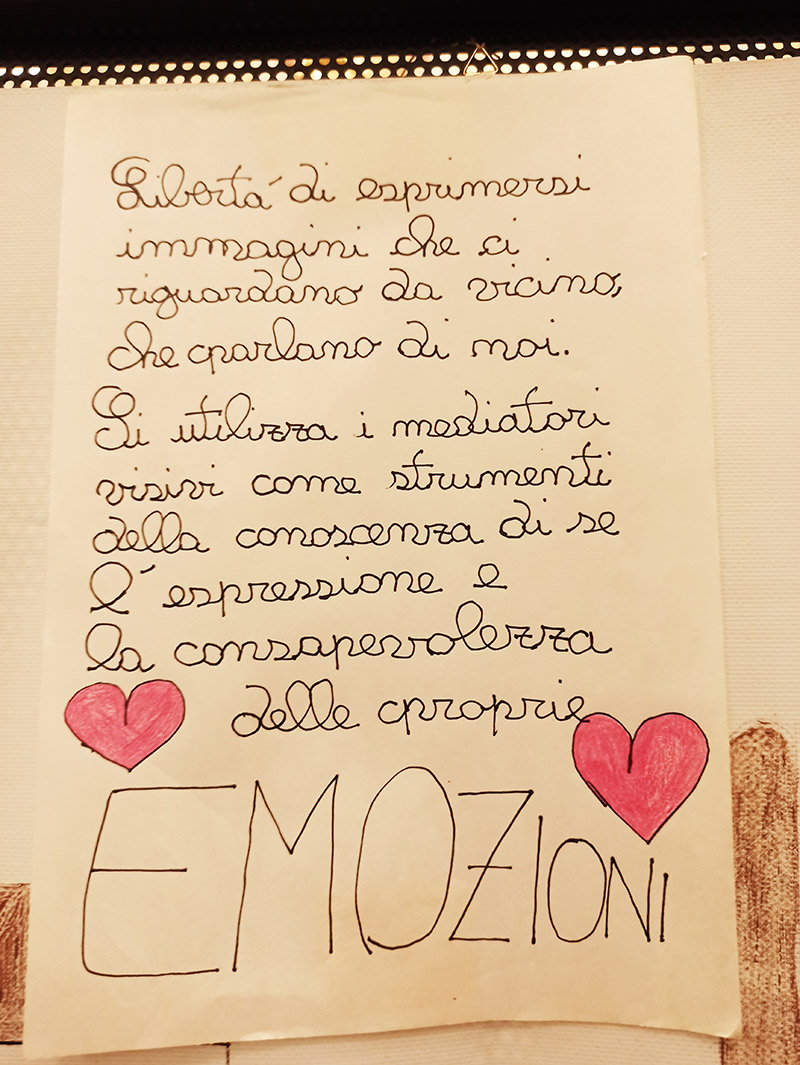 Libertà di esprimersi
immagini che ci
riguardano da vicino,
che parlano di noi.
Si utilizza i mediatori
visivi come strumenti
della conoscenza di se
l'espressione e
la consapevolezza
delle proprie
EMOZIONI